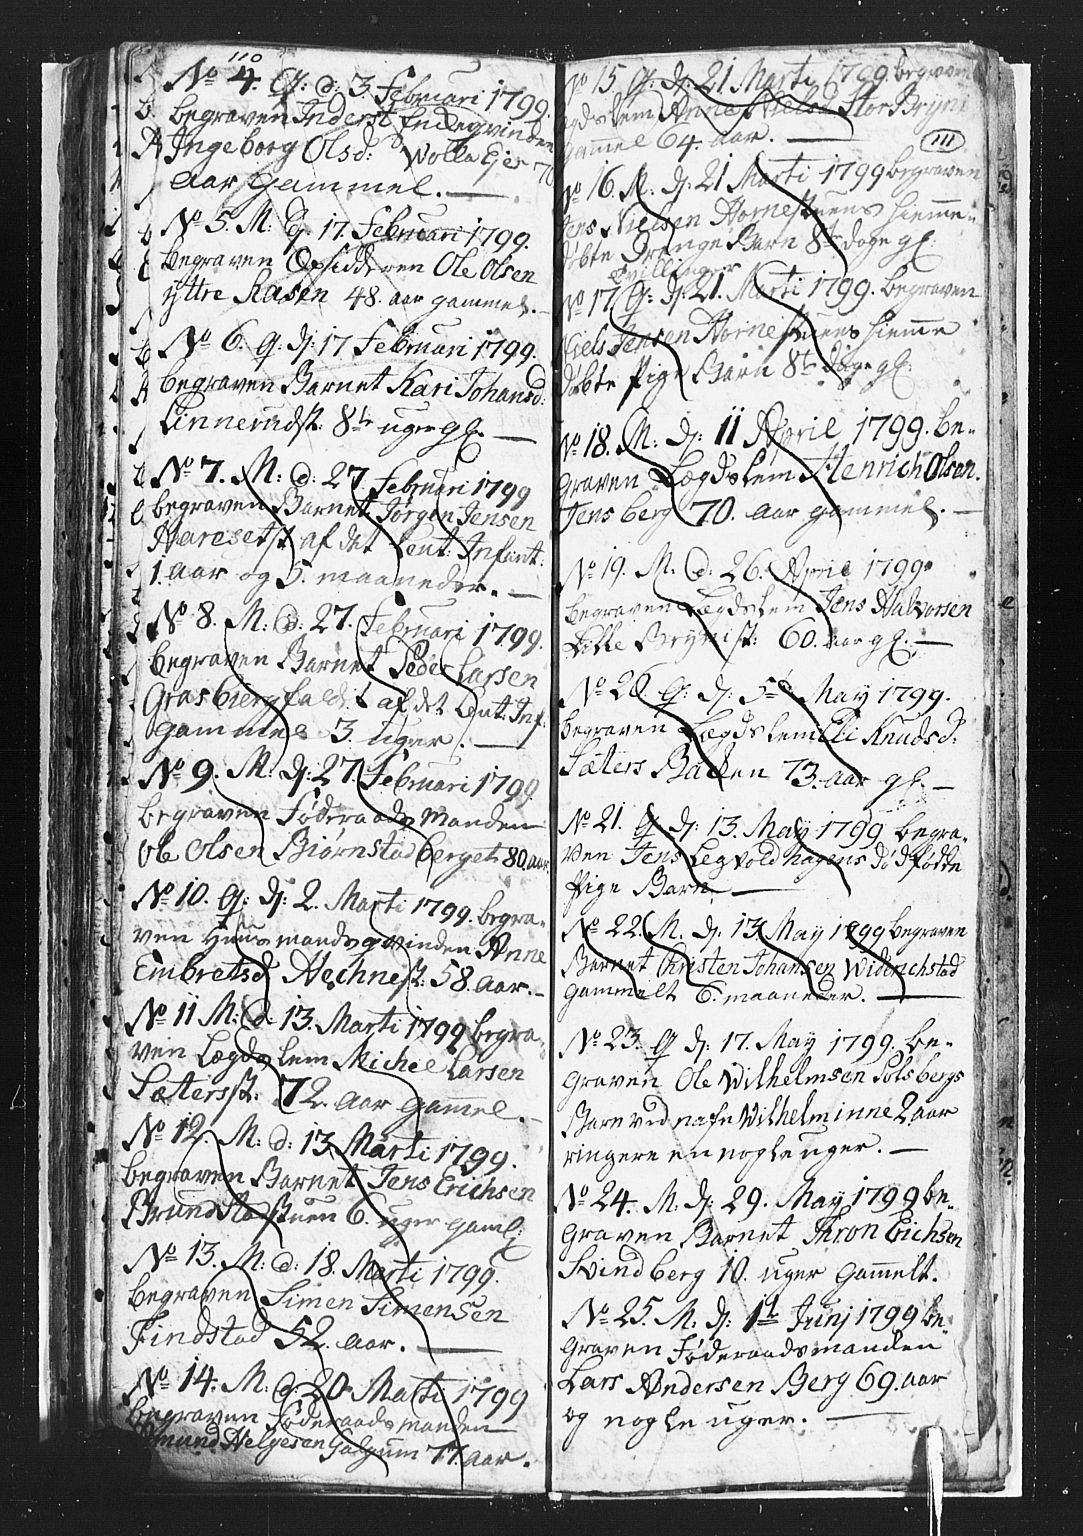 110
No 4. Q: d: 3. Februari 1799.
begraven Inderst Enkeqvinden
Ingeborg Olsd: Wolla Ejer 70
aar gammel.
No 5. M. d: 17. Februari 1799.
begraven Opsidderen Ole Olsen
yttre Kasen 48. aar gammel.
No 6. Q: d: 17. Februari 1799.
begraven Barnet Kari Johansd:
Linnerudst: 8te uger gl.
No 7. M: d: 27. Februari 1799
begraven Barnet Jørgen Jensen
Haresetst af det Leut: Infant:
1. aar og 5. maaneder.
No 8. M: d: 27. Februari 1799.
begraven Barnet Peder Larsen
Grasbiergfald: af det Leut: Inf:
gammel 3. uger.
No 9. M: d: 27. Februari 1799.
begraven Føderaads Manden
Ole Olsen Biørnstadberget 80. aar.
No 10. Q: d: 2. Marti 1799. begra-
ven Huusmandsqvinden Anne
Embretsd Hechnest: 58. aar.
No 11 M: d: 13. Marti 1799 begra-
ven Lægdslem Michel Larsen
Sætersst. 72. aar gamel.
No 12. M: d: 13. Marti 1799.
begraven Barnet Jens Erichsen
Brundstadstuen 6. uger gaml:
No 13. M: d: 18. Marti 1799.
begraven Simen Simensen
Findstad 52. aar.
No 14. M. d: 20. Marti 1799
begraven Føderaadsmanden
Amund Helgesen Galgum 77. aar.
No 15. Q: d: 21. Marti 1799. begraven
Lægdslem Anne Nielsd StorBryni
gamel 64. aar.
111
No 16. M. d: 21 Marti 1799 begraven
Jens Nielsen Hornestuens hieme-
døbte Drenge Barn 8te dage gl:
tvillinger
No 17. Q: d: 21. Marti 1799. begraven
Niels Jensen Hornestuens hieme
døbte Pige Barn 8te dage gl:
No 18. M: d: 11 April 1799. be-
graven Lægdslem Henrich Olsen.
Jensberg 70. aar gammel.
No 19. M. d. 26. April 1799.
begraven Lægdslem Jens Halvorsen
Lille Brynist: 60. aar gl.
No 20. Q: d: 5te May 1799.
begraven Lægdslem Eli Knudsd:
Sæters Backen 73. aar gl.
No 21. Q d: 13. May 1799 begra-
ven Jens Legvoldhagens dødfødte
Pige Barn.
No 22. M. d. 13. May 1799 begraven
Barnet Christen Johansen Widerichstad
gammelt 6. maaneder.
No 23. Q d: 17. May 1799. be-
graven Ole Wilhelmsen Solsbergs
Barn ved nafn Wilhelminne 2 aar
ringere en nogle uger.
No 24. M. d: 29. May 1799 be-
graven Barnet Thron Erichsen
Svindberg 10. uger gamelt.
No 25. M. d: 1te Junj 1799 be-
graven Føderaadsmanden
Lars Andersen Berg 69. aar
og nogle uger.